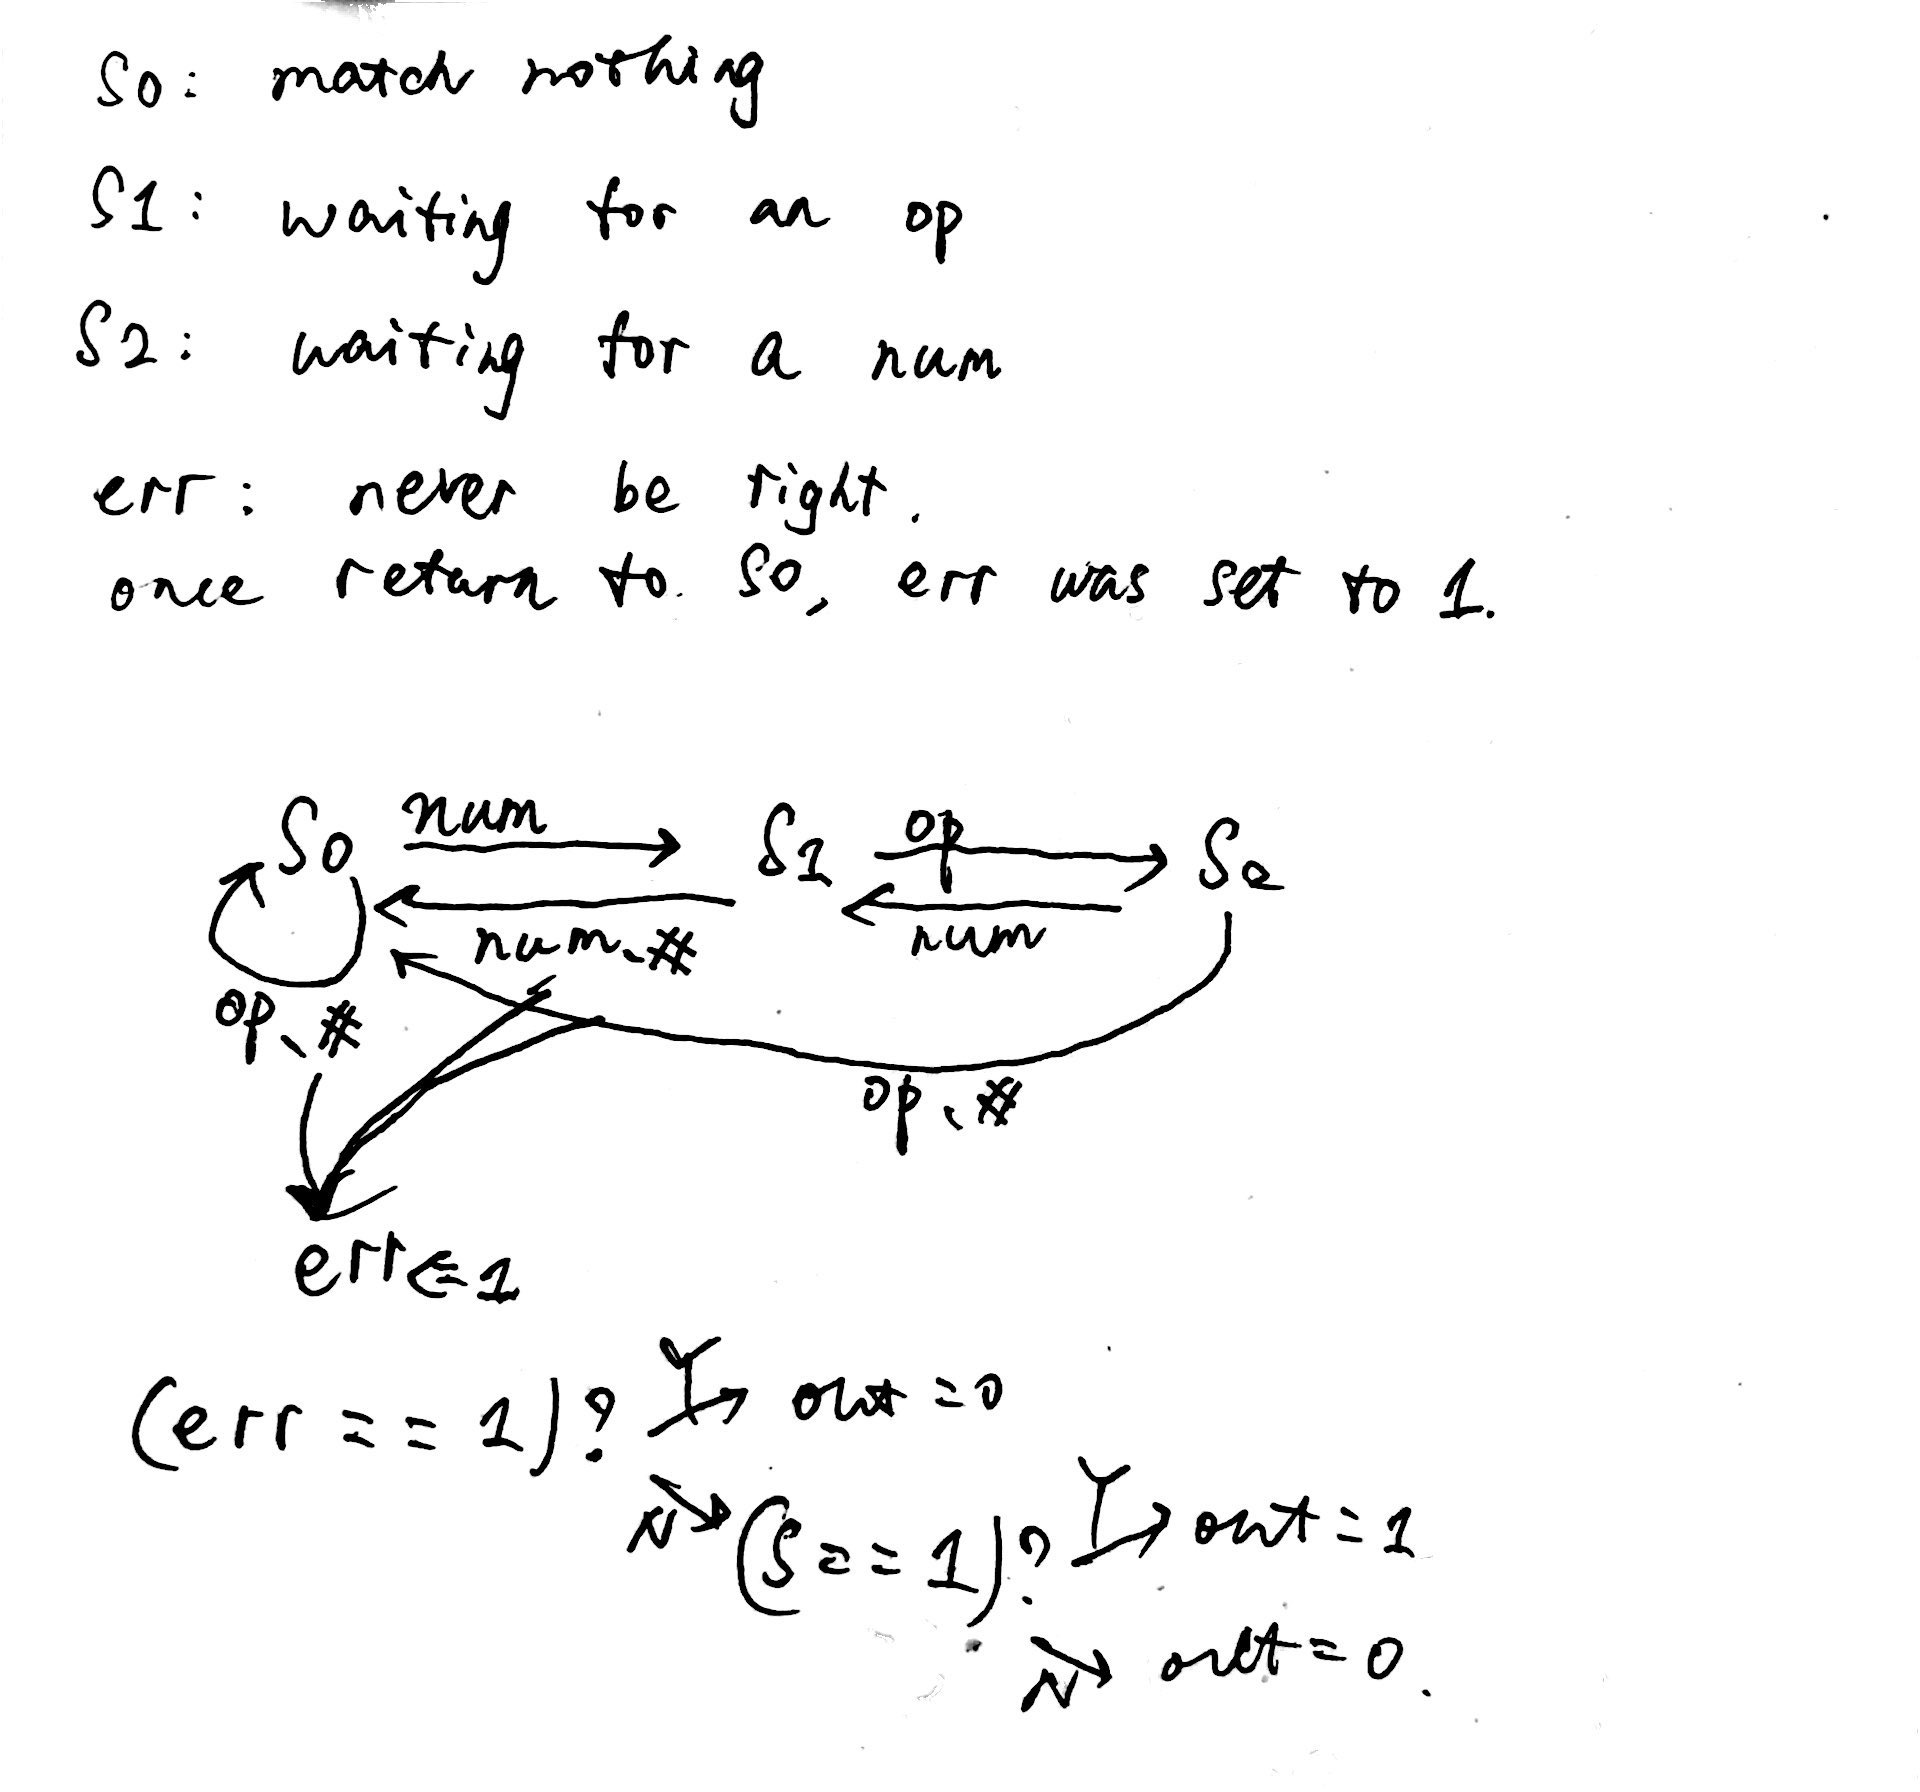 S0: match nothing
S1: waiting for an op
S2: waiting for a num
err: never be right.
once return to S0, err was set to 1.
S0 num S1 op S2
num、# num
op、#
op、#
err⇐1
(err == 1)? Y out = 0
N (S == 1)? Y out = 1
N out = 0.